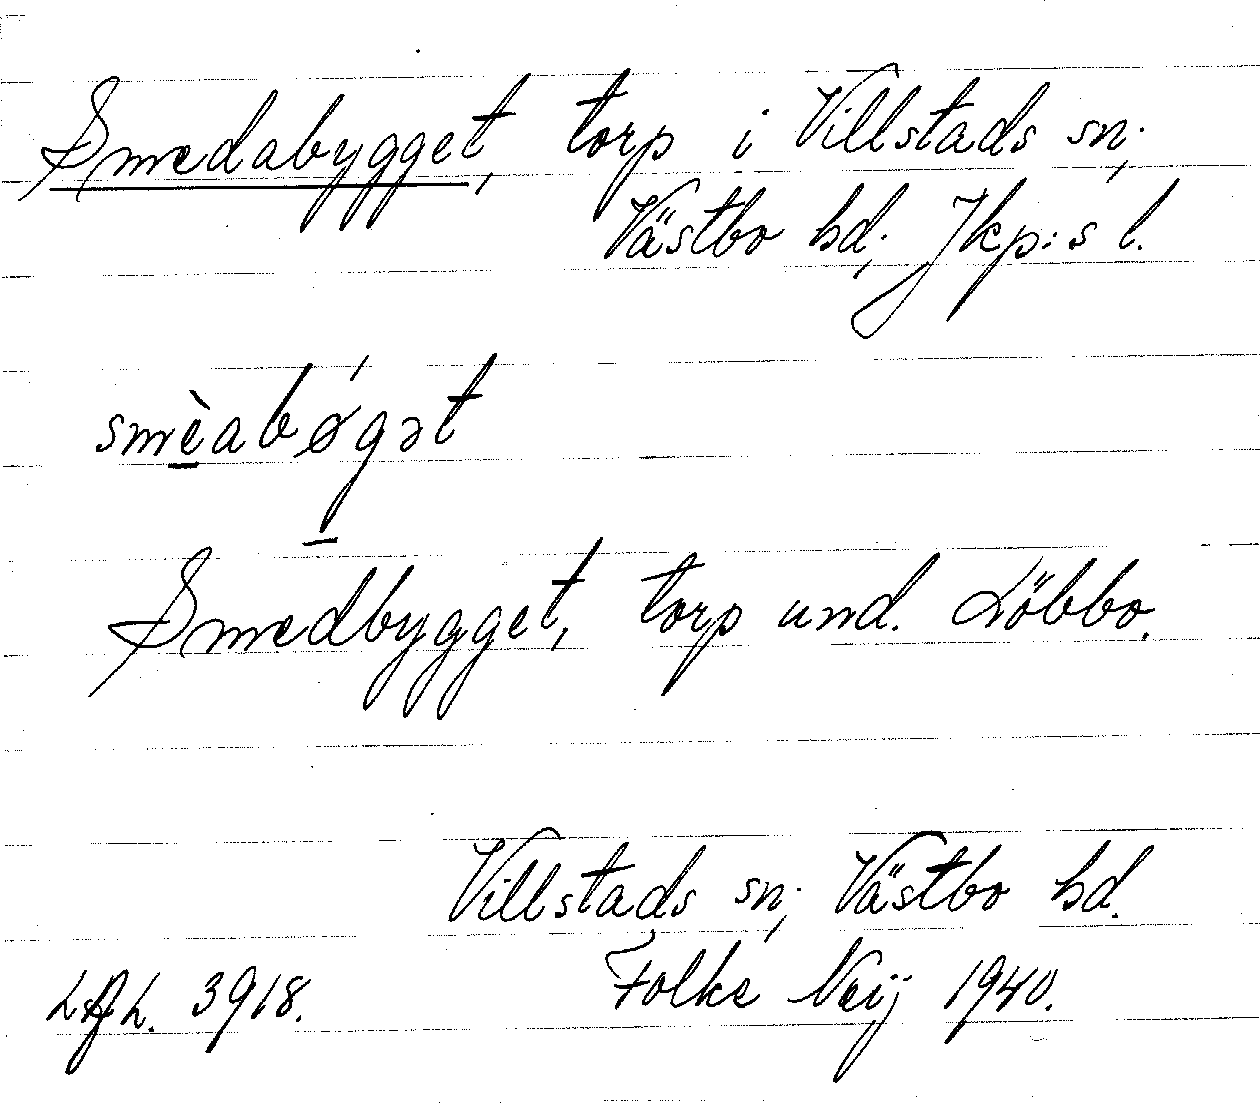 Smedabygget, torp i Villstads sn;
Västbo hd; Jkp:s l.
smèabǿgət
Smedbygget, torp und. Löbbo.
Villstads sn; Västbo hd.
3918. Folke Neij 1940.